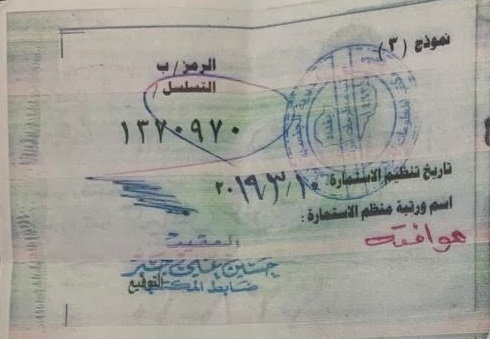 نموذج (٣)
الرمز / ب
التسلسل /
١٣٧٠٩٧٠
تاريخ تنظيم الاستمارة: ٢٠١٩/٣/١٠
اسم ورتبة منظم الاستمارة :
موافقه
العقيد
حسين علي
ضابط المكتب
التوقيع